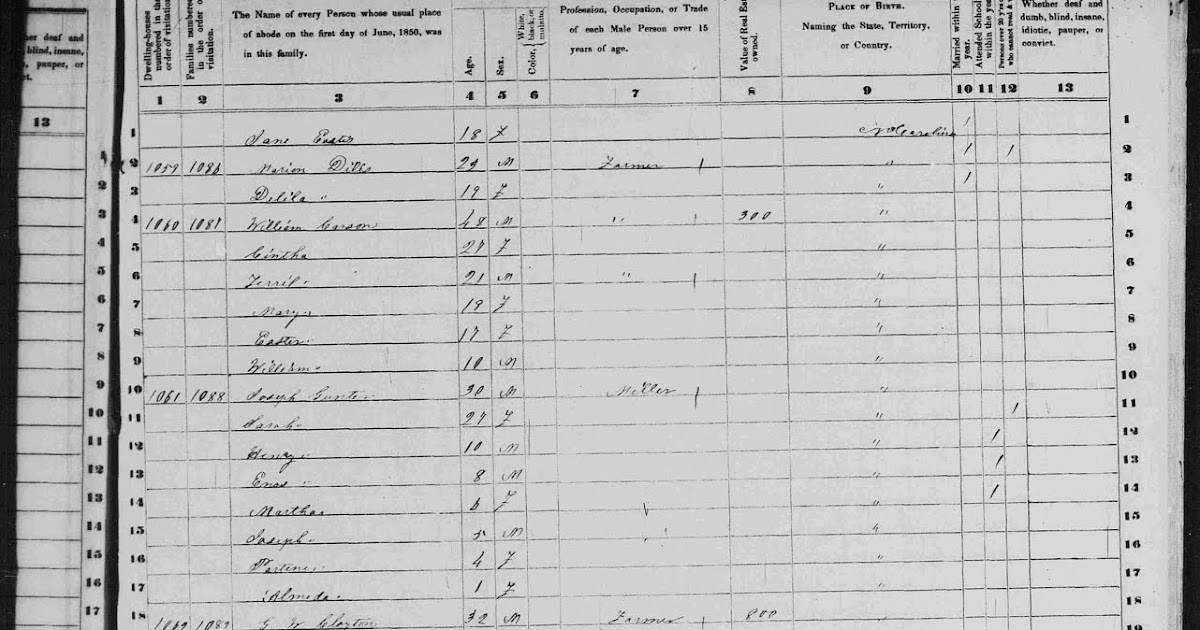 her deaf and
blind, insane,
pauper, or
ct.
13
1
2
3
4
5
6
7
8
9
10
11
12
13
14
15
16
17
Dwelling-houses numbered in the order of visitation.
Families numbered in the order of visitation.
The Name of every Person whose usual place
of abode on the first day of June, 1850, was
in this family.
Age.
Sex.
Color, White, black, or mulatto.
Profession, Occupation, or Trade
of each Male Person over 15
years of age.
Value of Real Estate owned.
PLACE OF BIRTH.
Naming the State, Territory,
or Country.
Married within the year.
Attended School within the year.
Persons over 20 y'rs who cannot read &
Whether deaf and
dumb, blind, insane,
idiotic, pauper, or
convict.
1 2 3 4 5 6 7 8 9 10 11 12 13
1 Jane Easter 18 F N Carolina 1 1
2 1059 1086 Marion Dills 23 M Farmer " 1 1 2
3 Delila " 19 F " 1 3
4 1060 1087 William Carson 48 M " 300 " 4
5 Cintha 27 F " 5
6 " 21 M " " 6
7 Mary " 19 F " 7
8 Easter " 17 F " 8
9 William " 10 M " 9
10 1061 1088 Joseph Gunter 30 M Miller " 10
11 Sarah " 27 F " 1 11
12 Henry " 10 M " 1 12
13 Enos " 8 M " 1 13
14 Martha 6 F " 1 14
15 Joseph " 5 M " 15
16 4 F " 16
17 Almeda " 1 F " 17
18 1062 1089 G W Clayton 32 M Farmer 800 18
19